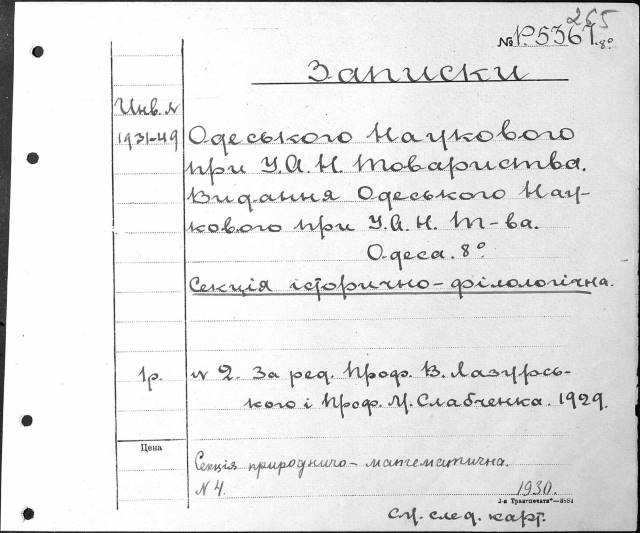 265
№ 1P5367.8°
Записки
Инв. N
1931-49
Одеського Наукового
при У.А.Н. Товариства.
Видання Одеського Нау-
кового при У.А.Н. Т-ва.
Одеса. 8°
Секція історично-філологічна.
1р.
N 2. За ред. Проф. В. Лазурсь-
кого і Проф. М. Слабченка. 1929.
Цена
Секція природничо-математична.
N 4. 1930.
См. след. карт.